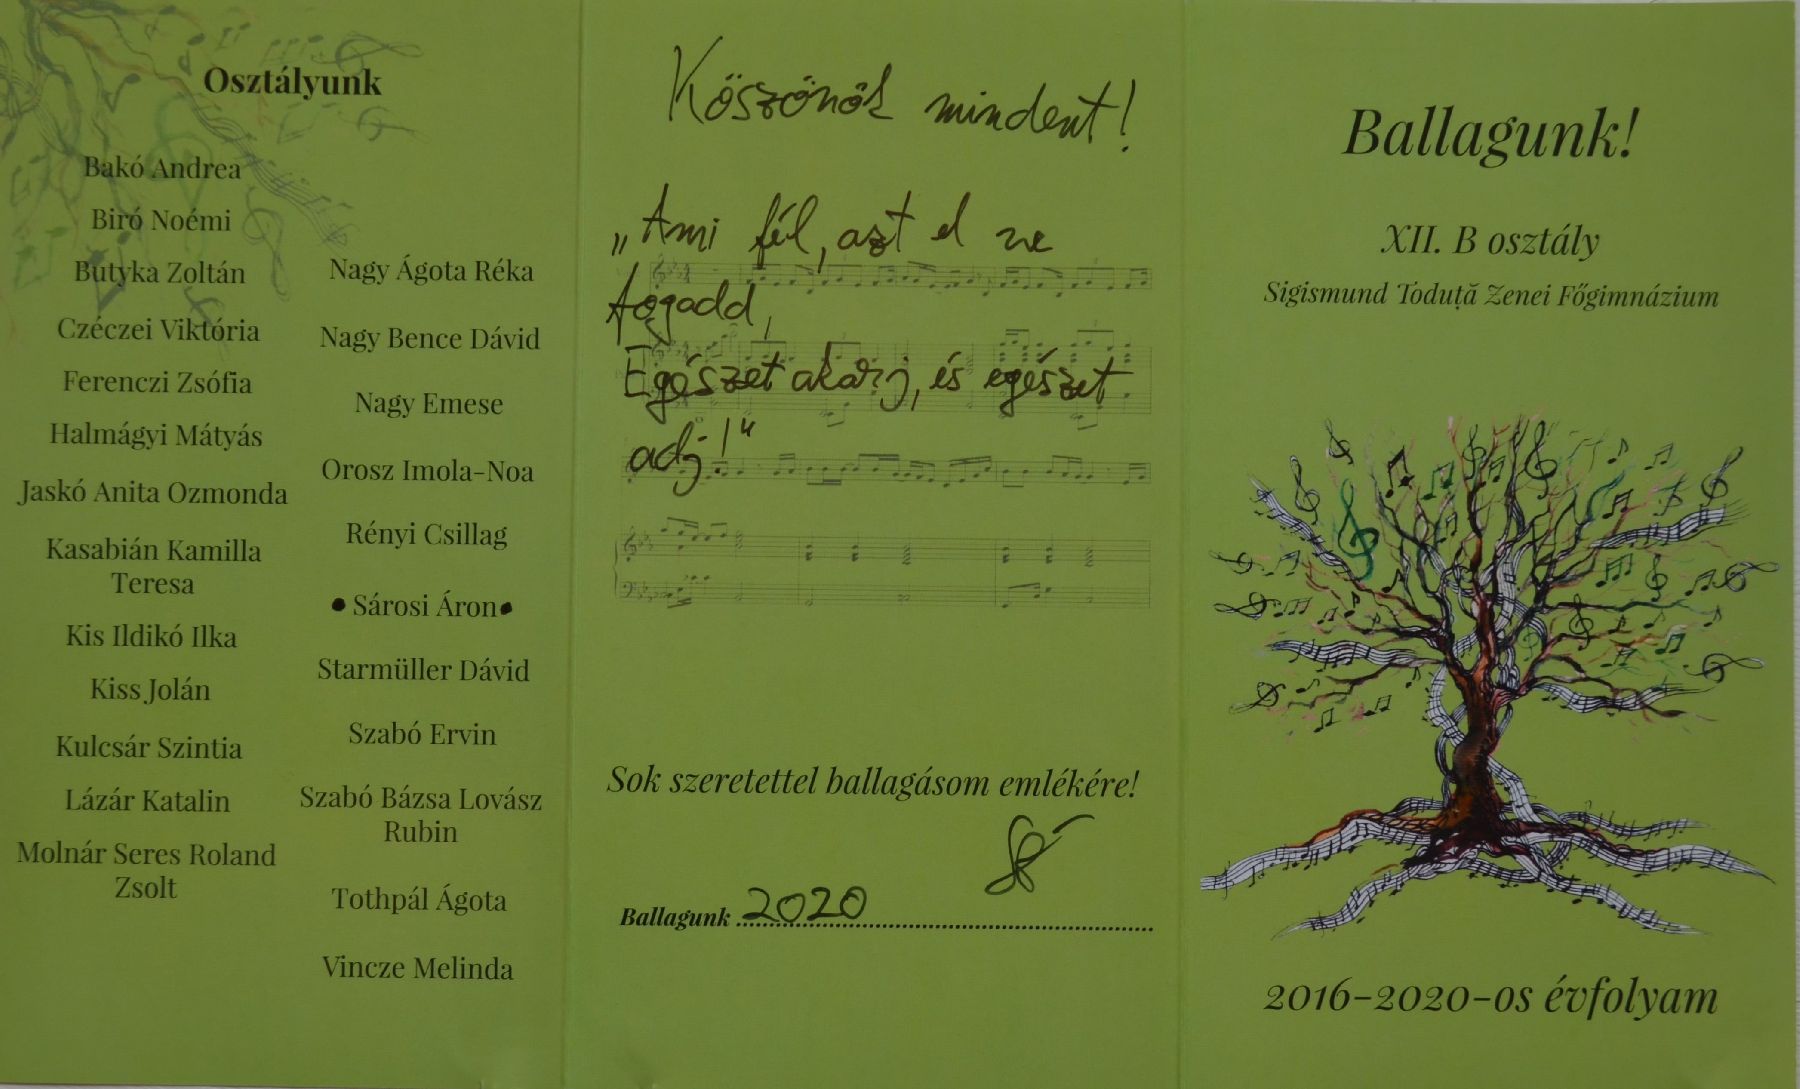 Osztályunk
Bakó Andrea
Biró Noémi
Butyka Zoltán
Czéczei Viktória
Ferenczi Zsófia
Halmágyi Mátyás
Jaskó Anita Ozmonda
Kasabián Kamilla
Teresa
Kis Ildikó Ilka
Kiss Jolán
Kulcsár Szintia
Lázár Katalin
Molnár Seres Roland
Zsolt
Nagy Ágota Réka
Nagy Bence Dávid
Nagy Emese
Orosz Imola-Noa
Rényi Csillag
• Sárosi Áron •
Starmüller Dávid
Szabó Ervin
Szabó Bázsa Lovász
Rubin
Tothpál Ágota
Vincze Melinda
Köszönök mindent!
„Ami fél, azt el ne
fogadd,
Egészet akarj, és egészet
adj!"
Sok szeretettel ballagásom emlékére!
Ballagunk 2020
Ballagunk!
XII. B osztály
Sigismund Toduță Zenei Főgimnázium
2016-2020-os évfolyam